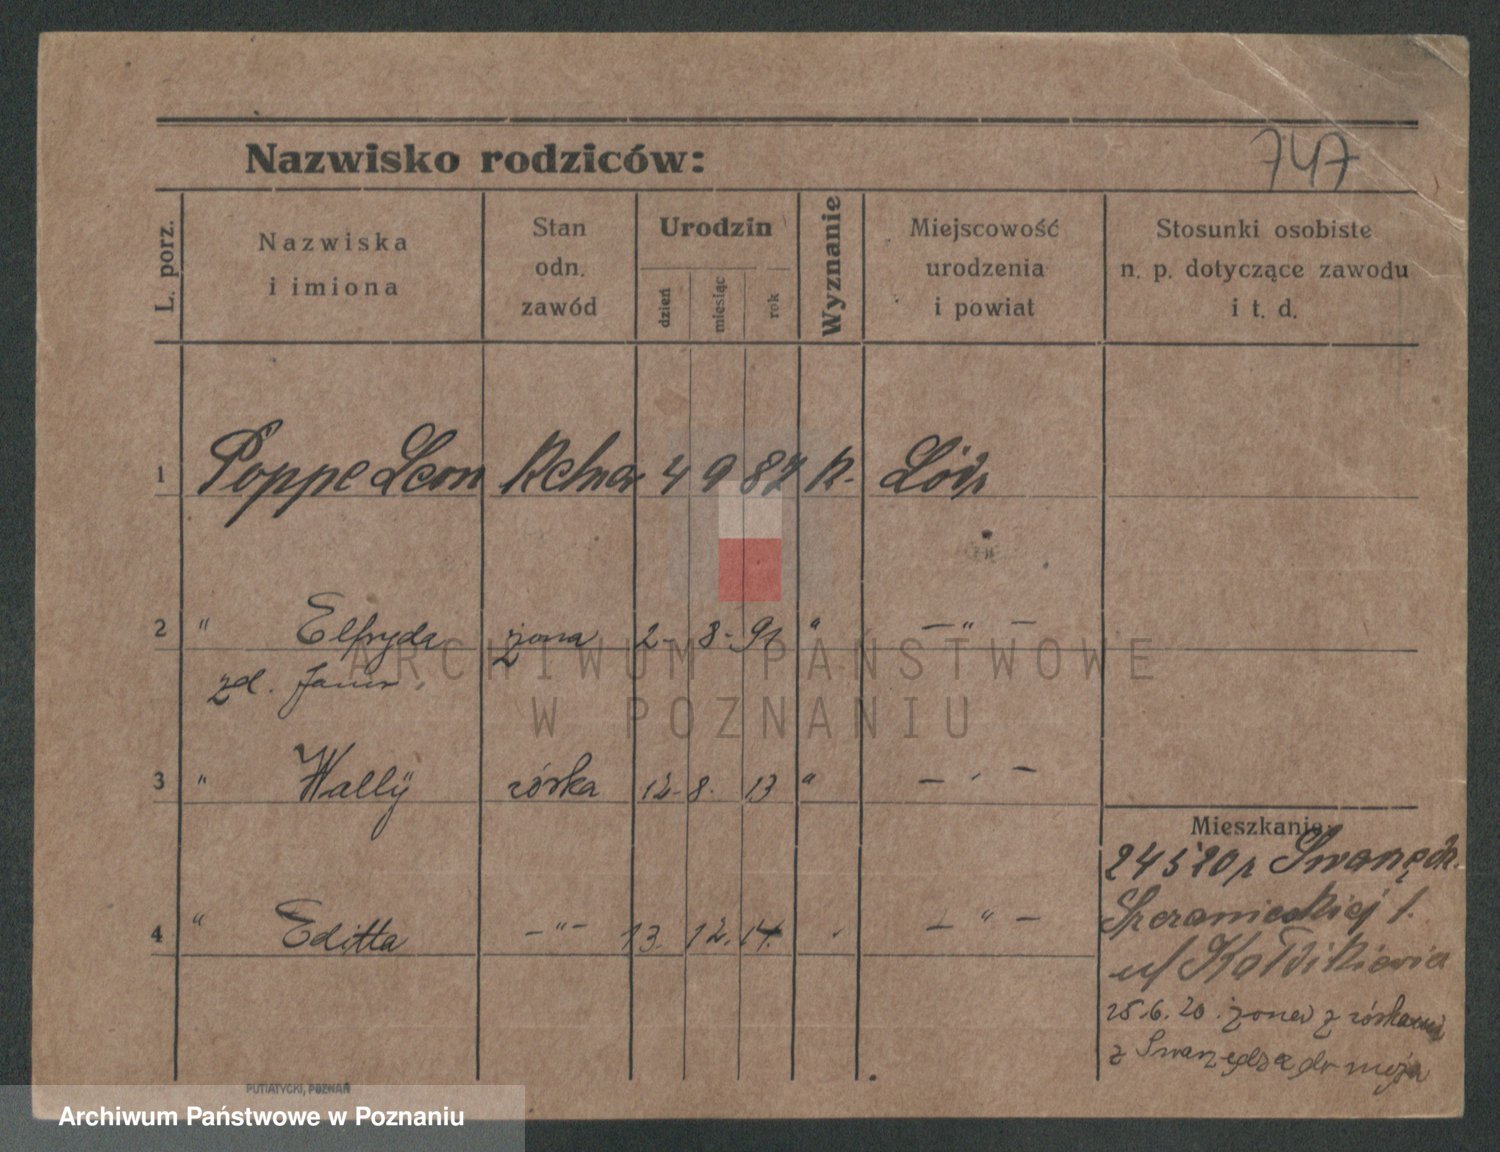 747
Nazwisko rodziców:
L. porz.
Nazwiska
i imiona
Stan
odn.
zawód
Urodzin
dzień
miesiąc
rok
Wyznanie
Miejscowość
urodzenia
i powiat
Stosunki osobiste
n. p. dotyczące zawodu
i t. d.
1 Poppe Leon 4 9 87 k. Łódź
2 " Elfryda żona 2- 8- 91 " — " —
zd.
3 " Wally córka 12. 8. 13 " — " —
4 " Editta — " — 13. 12. 14. — " —
Mieszkanie:
24 5 20 z Swarzędz.
1.
25.6.20. żona z córkami
z Swarzędza do męża
ARCHIWUM PAŃSTWOWE
W POZNANIU
PUTIATYCKI, POZNAŃ
Archiwum Państwowe w Poznaniu